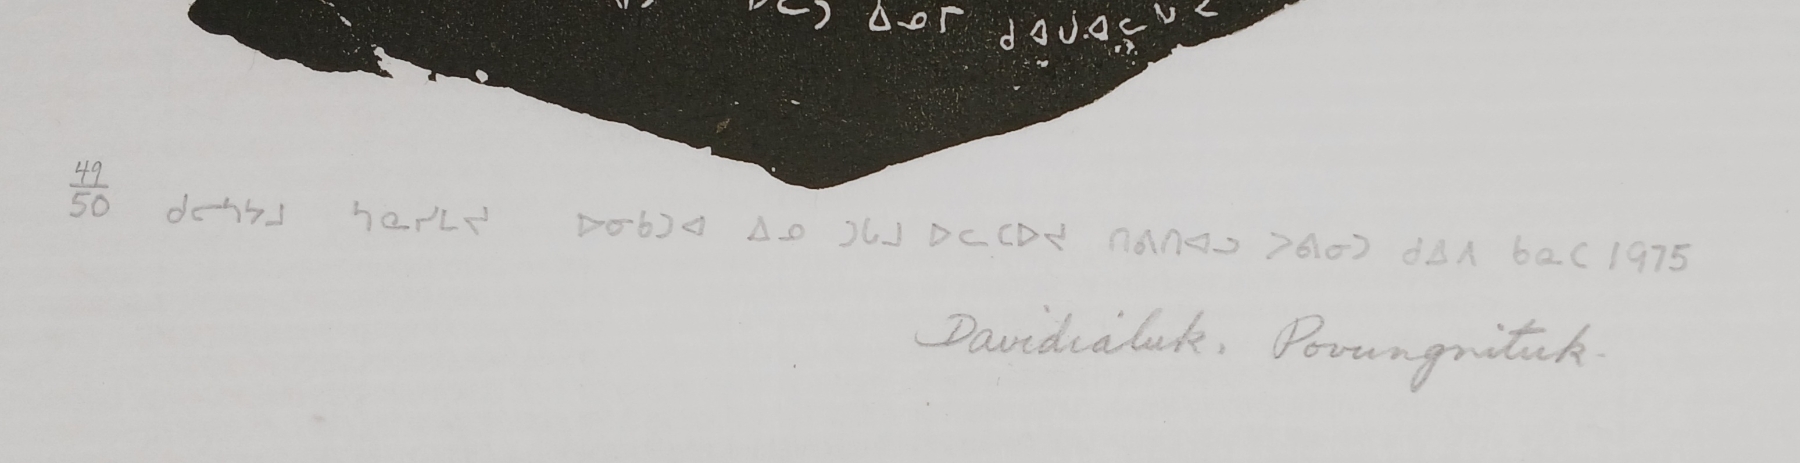 ᐃᓄᒥ
49/50 ᑯᓕᓴᔭᒍ ᓴᓇᓯᒪᔪ ᐅᓂᑲᑐᐊ ᐃᓄ ᑐᒐᒍ ᐅᓚᑕᐅᔪ ᑎᕕᑎᐊᓗ ᐳᕕᓂᑐ ᑯᐃᐱ ᑲᓇᑕ 1975
Davidialuk. Povungnituk.